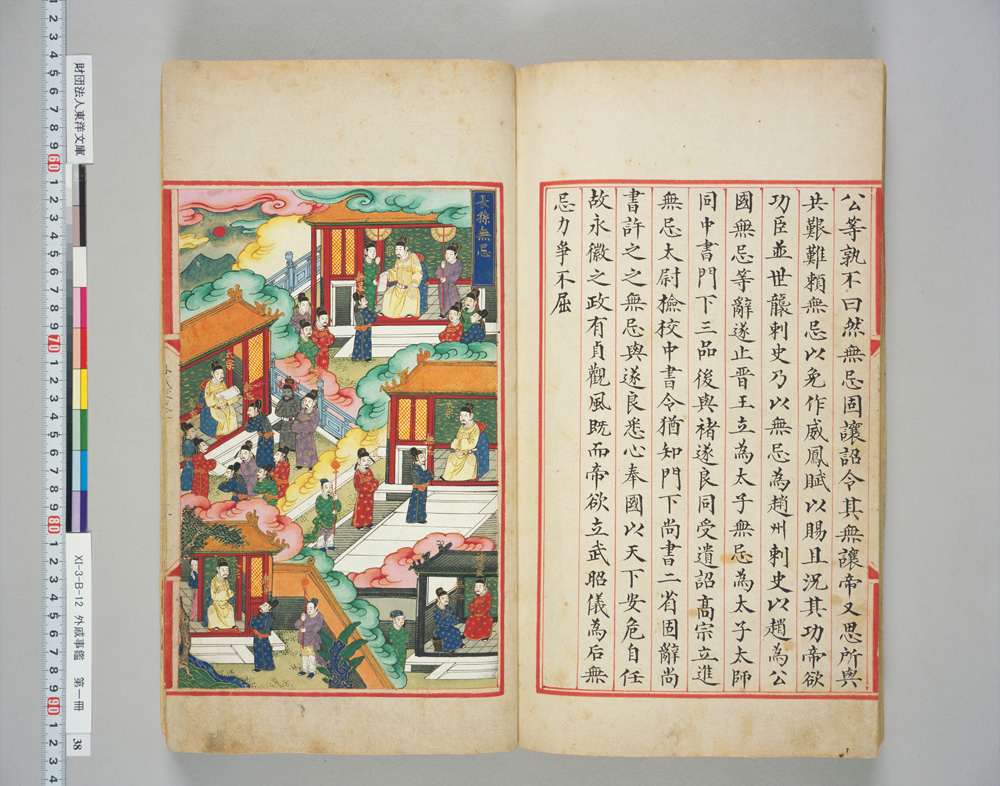 公等孰不曰然無忌固讓詔令其無讓帝又思所與
共艱難賴無忌以免作威鳳賦以賜且況其功帝欲
功臣並世襲刺史乃以無忌為趙州刺史以趙為公
國無忌等辭遂止晋王立為太子無忌為太子太師
同中書門下三品後與褚遂良同受遺詔高宗立進
無忌太尉檢校中書令猶知門下尚書二省固辭尚
書許之之無忌與遂良悉心奉國以天下安危自任
故永徽之政有貞觀風既而帝欲立武昭儀為后無
忌力爭不屈
長孫無忌
財団法人東洋文庫
XI-3-B-12 外戚事鑑 第一冊
38
1 2 3 4 5 6 7 8 9 60 1 2 3 4 5 6 7 8 9 70 1 2 3 4 5 6 7 8 9 80 1 2 3 4 5 6 7 8 9 90 1 2 3 4